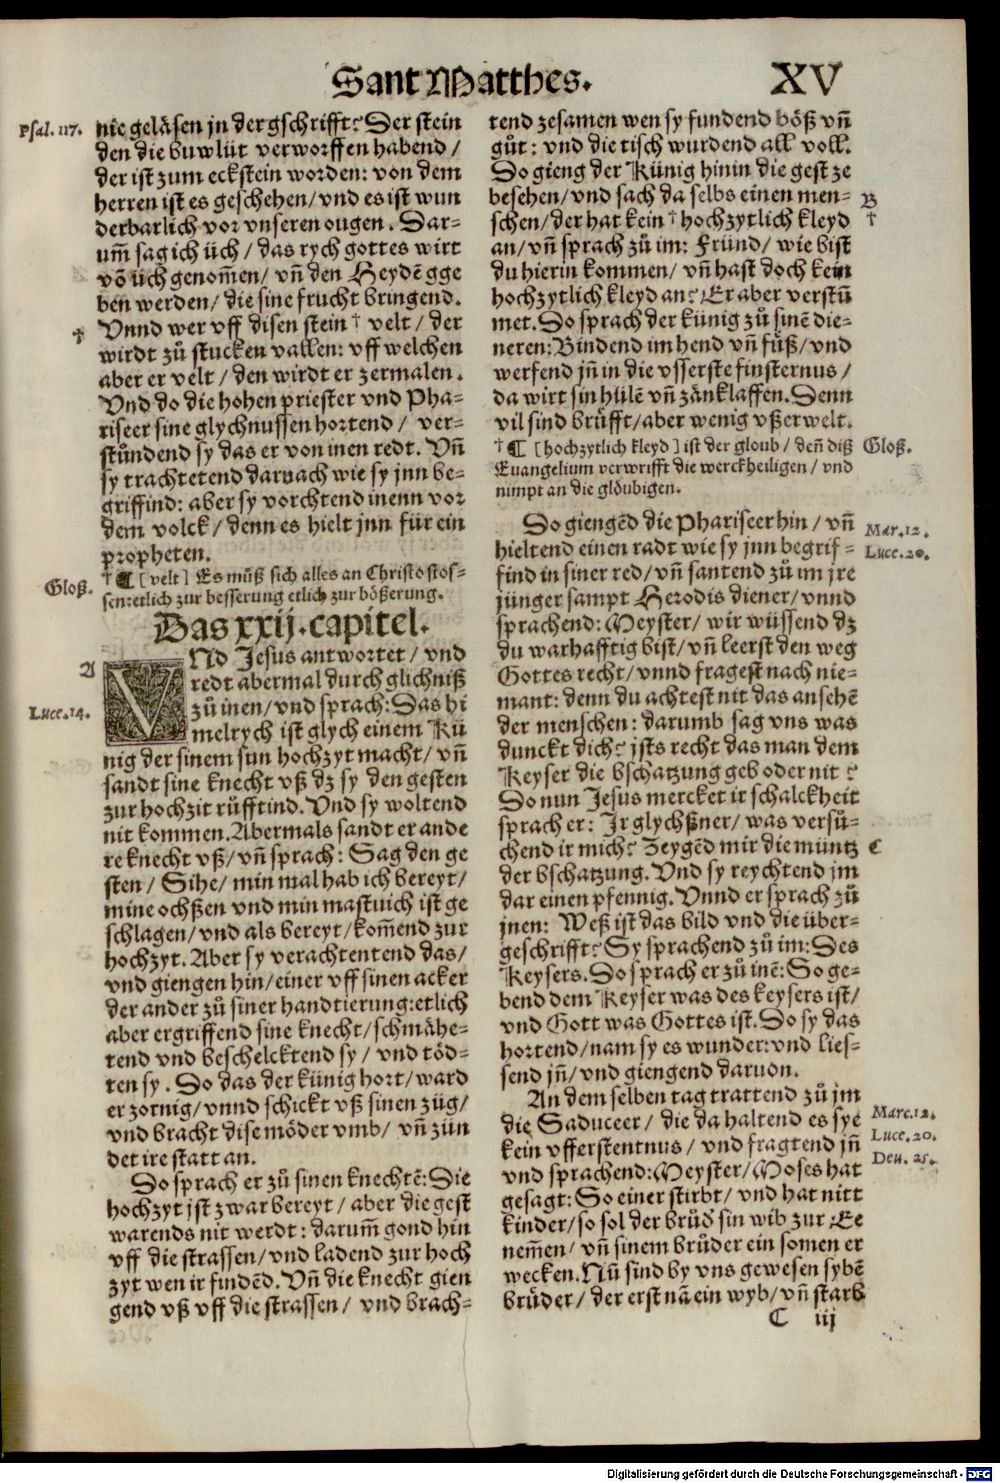 Sant Matthes. XV
Psal. 117.
nie geläsen jn der gschrifft? Der stein
den die buwlüt verworffen habend /
der ist zum eckstein worden: von dem
herren ist es geschehen / vnd es ist wun
derbarlich vor vnseren ougen. Dar-
um̃ sag ich üch / das rych gottes wirt
võ üch genom̃en / vñ den Heydẽ gge
ben werden / die sine frucht bringend.
Vnnd wer vff disen stein † velt / der
†
wirdt zů stucken vallen: vff welchen
aber er velt / den wirdt er zermalen.
Vnd do die hohen priester vnd Pha-
riseer sine glychnussen hortend / ver-
stůndend sy das er von inen redt. Vñ
sy trachtetend darnach wie sy jnn be-
griffind: aber sy vorchtend inenn vor
dem volck / denn es hielt jnn für ein
propheten.
Gloß.
† ¶ [velt] Es můß sich alles an Christo stos-
sen: etlich zur besserung etlich zur bößerung.
Das xxij. capitel.
A
VNd Jesus antwortet / vnd
redt abermal durch glichniß
Luce. 14.
zů inen / vnd sprach: Das hi
melrych ist glych einem Kü
nig der sinem sun hochzyt macht / vñ
sandt sine knecht vß dz sy den gesten
zur hochzit růfftind. Vnd sy woltend
nit kommen. Abermals sandt er ande
re knecht vß / vñ sprach: Sag den ge
sten / Sihe / min mal hab ich bereyt /
mine ochßen vnd min mastuich ist ge
schlagen / vnd als bereyt / kom̃end zur
hochzyt. Aber sy verachtentend das /
vnd giengen hin / einer vff sinen acker
der ander zů siner handtierung: etlich
aber ergriffend sine knecht / schmähe-
tend vnd beschelcktend sy / vnd töd-
ten sy. Do das der künig hort / ward
er zornig / vnnd schickt vß sinen züg /
vnd bracht dise möder vmb / vñ zün
det ire statt an.
Do sprach er zů sinen knechtẽ: Die
hochzyt jst zwar bereyt / aber die gest
warends nit werdt: darum̃ gond hin
vff die strassen / vnd ladend zur hoch
zyt wen ir findẽd. Vñ die knecht gien
gend vß vff die strassen / vnd brach-
tend zesamen wen sy fundend böß vñ
gůt: vnd die tisch wurdend all voll.
Do gieng der Künig hinin die gest ze
besehen / vnd sach da selbs einen men-
B
schen / der hat kein † hochzytlich kleyd
†
an / vñ sprach zů im: Fründ / wie bist
du hierin kommen / vñ hast doch kein
hochzytlich kleyd an? Er aber verstů
met. Do sprach der künig zů sinẽ die-
neren: Bindend im hend vñ füß / vnd
werfend jñ in die vsserste finsternus /
da wirt sin hülẽ vñ zänklaffen. Denn
vil sind brüfft / aber wenig vßerwelt.
† ¶ [hochzytlich kleyd] ist der gloub / deñ diß
Gloß.
Euangelium verwrifft die werckheiligen / vnd
nimpt an die glöubigen.
Do giengẽd die Phariseer hin / vñ
Mar. 12.
hieltend einen radt wie sy jnn begrif-
Luce. 20.
find in siner red / vñ santend zů im jre
jünger sampt Herodis diener / vnnd
sprachend: Meyster / wir wüssend dz
du warhafftig bist / vñ leerst den weg
Gottes recht / vnnd fragest nach nie-
mant: denn du achtest nit das ansehẽ
der menschen: darumb sag vns was
dunckt dich? jsts recht das man dem
Keyser die bschatzung geb oder nit?
Do nun Jesus mercket ir schalckheit
sprach er: Jr glychßner / was versů-
chend ir mich? Zeygẽd mir die müntz
C
der bschatzung. Vnd sy reychtend jm
dar einen pfennig. Vnnd er sprach zů
jnen: Weß ist das bild vnd die über-
geschrifft? Sy sprachend zů im: Des
Keysers. Do sprach er zů inẽ: So ge-
bend dem Keyser was des keysers ist /
vnd Gott was Gottes ist. Do sy das
hortend / nam sy es wunder: vnd lies-
send jñ / vnd giengend daruon.
An dem selben tag trattend zů jm
die Saduceer / die da haltend es sye
Marc. 12.
kein vfferstentnus / vnd fragtend jñ
Luce. 20.
vnd sprachend: Meyster / Moses hat
Deu. 25.
gesagt: So einer stirbt / vnd hat nitt
kinder / so sol der brůd̃ sin wib zur Ee
nem̃en / vñ sinem brůder ein somen er
wecken. Nũ sind by vns gewesen sybẽ
brüder / der erst nã ein wyb / vñ starb
C iij
Digitalisierung gefördert durch die Deutsche Forschungsgemeinschaft - DFG